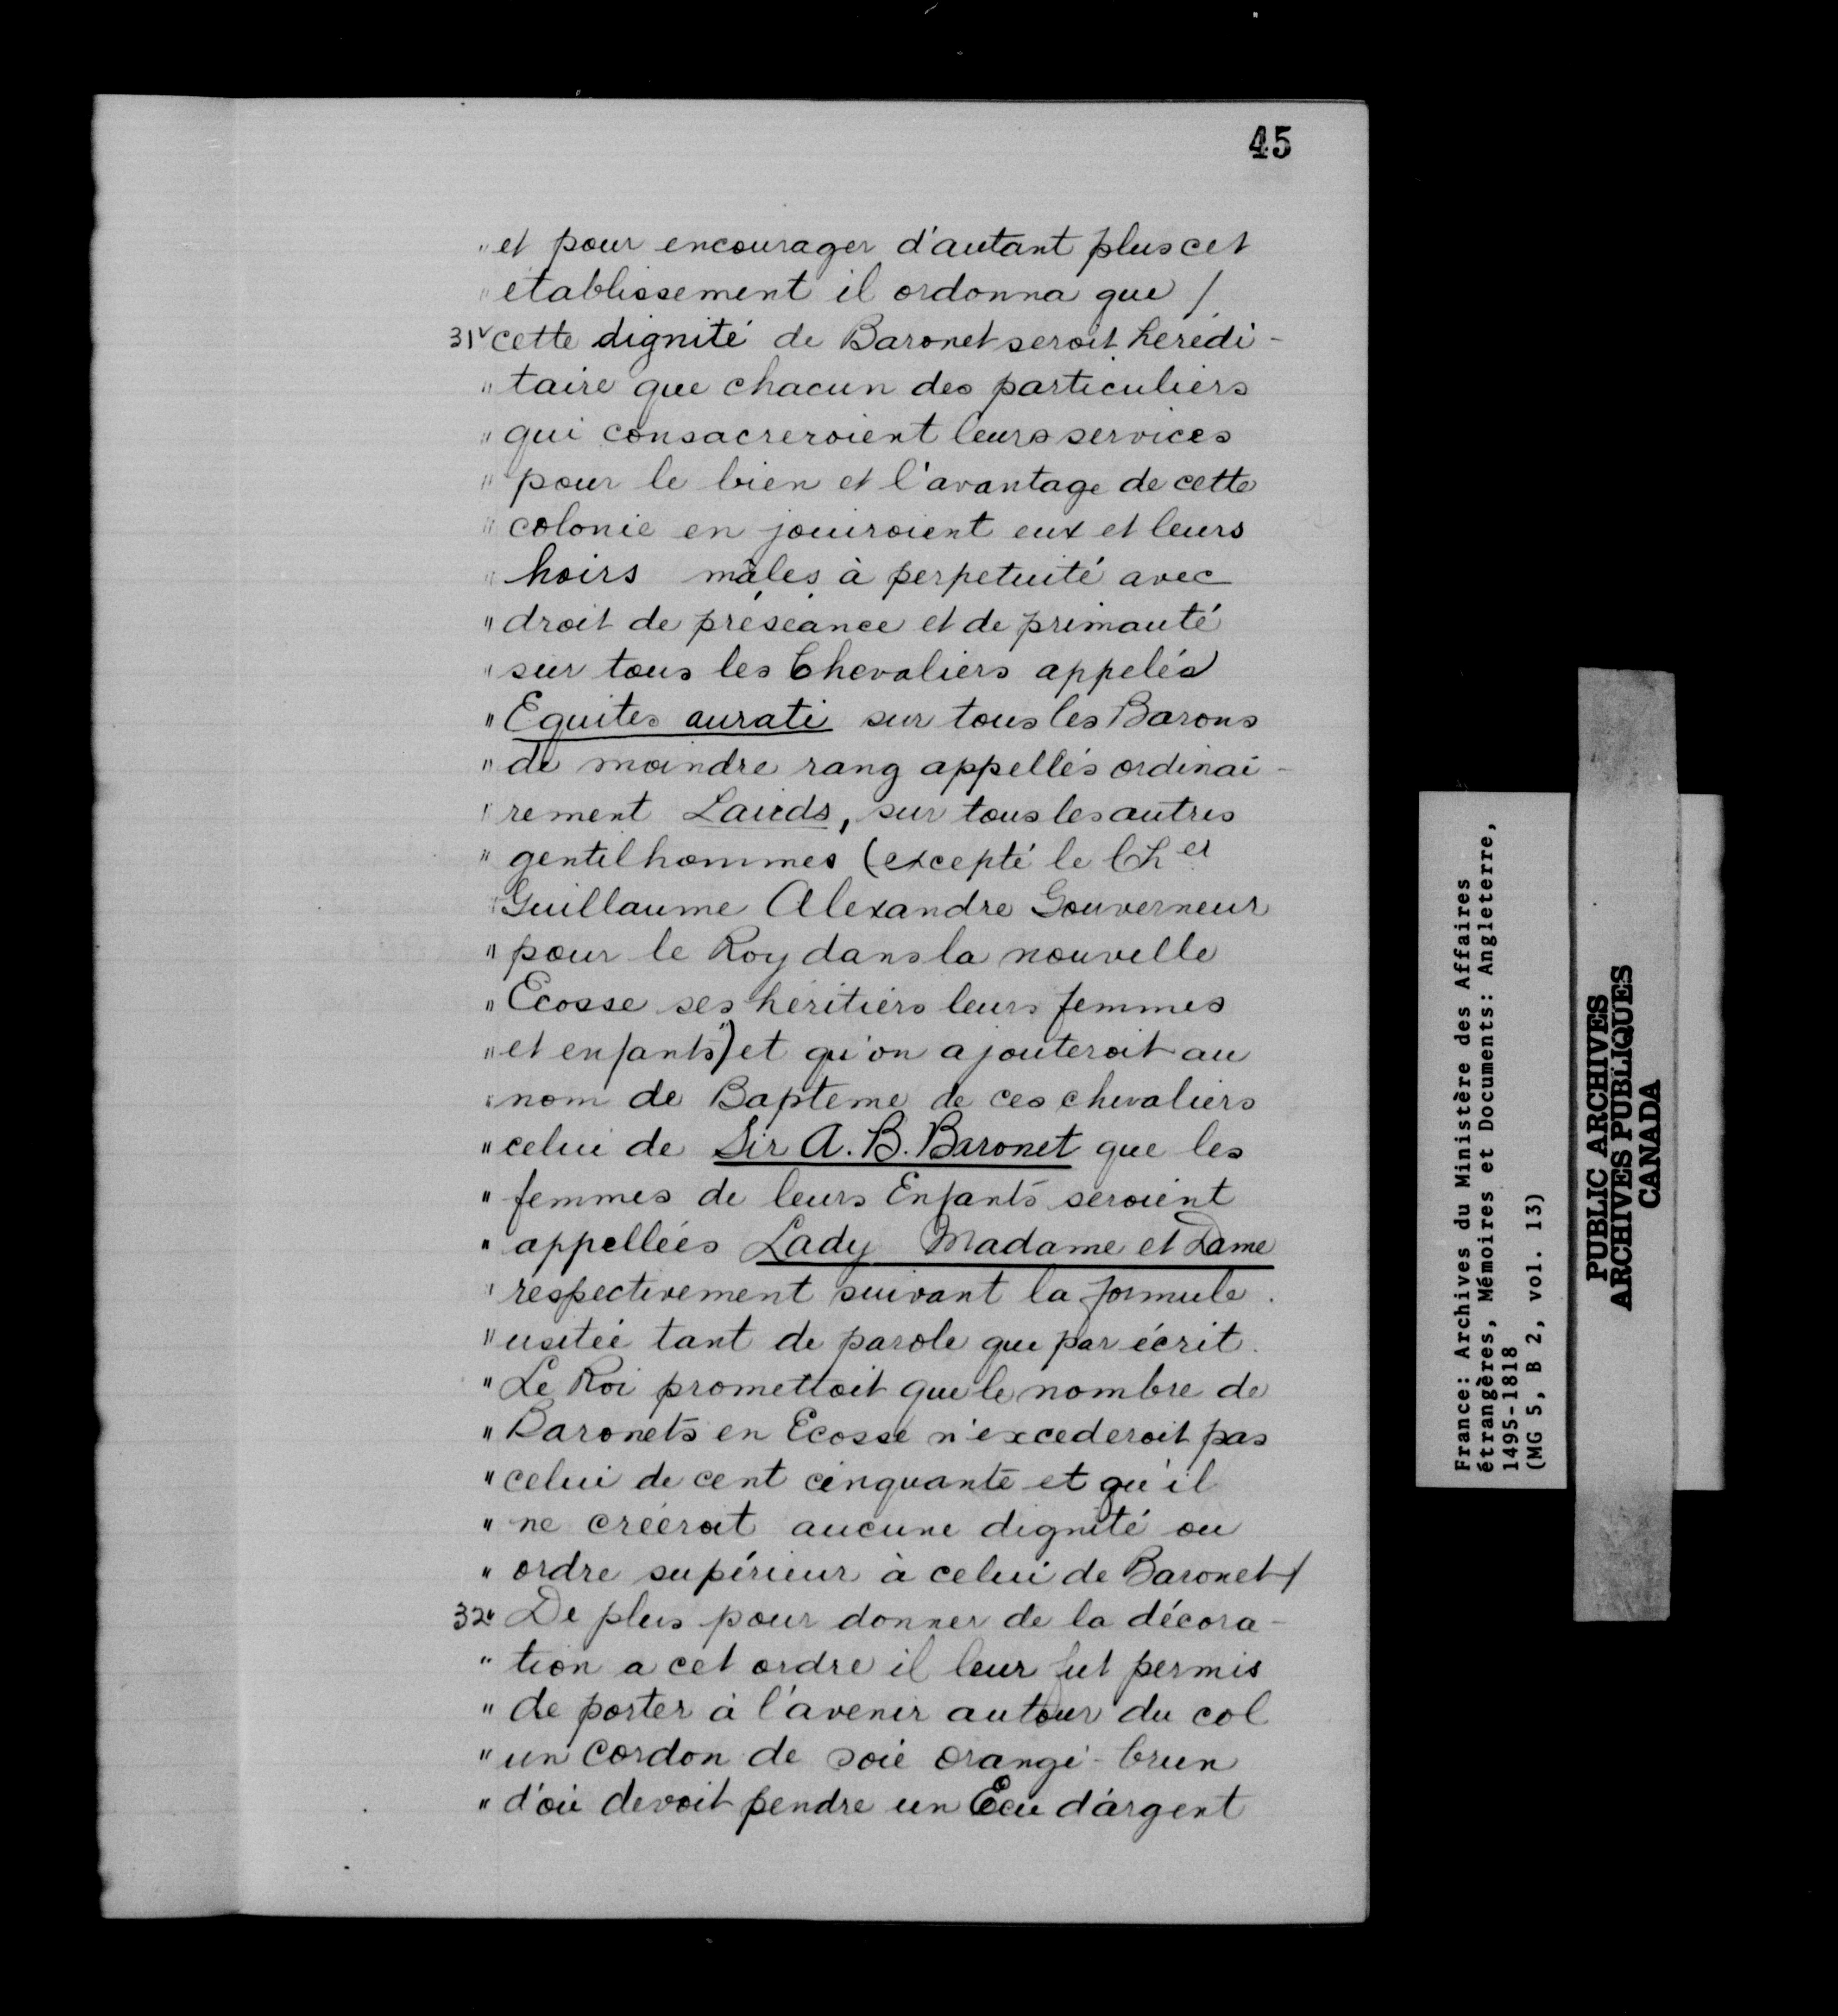 45
"et pour encourager d'autant plus cet
"etablissement il ordonna que /
31v cette dignité de Baronet seroit herédi-
"taire que chacun des particuliers
"qui consacreroient leurs services
"pour le bien et l'avantage de cette
"colonie en jouiroient eux et leurs
"hoirs mâles à perpetuité avec
"droit de préséance et de primauté
"sur tous les Chevaliers appelés
"Equites aurati sur tous les Barons
"de moindre rang appellés ordinai-
"rement Lairds, sur tous les autres
"gentilhommes (excepté le Cher
"Guillaume Alexandre Gouverneur
"pour le Roy dans la nouvelle
"Ecosse ses héritiers leurs femmes
"et enfants") et qu'on ajouteroit au
"nom de Bapteme de ces chevaliers
"celui de Sir A. B. Baronet que les
"femmes de leurs Enfants seroient
"appellées Lady Madame et Dame
"respectivement suivant la formule.
"usitée tant de parole que par écrit.
"Le Roi promettoit que le nombre de
"Baronets en Ecosse n'excederoit pas
"celui de cent cinquante et qu'il
"ne crééroit aucune dignité ou
"ordre supérieur à celui de Baronet /
32 De plus pour donner de la décora-
"tion a cet ordre il leur fut permis
"de porter à l'avenir autour du col
"un cordon de soie orangé-brun
"d'où devoit pendre un Ecu d'argent
France: Archives du Ministère des Affaires
étrangères, Mémoires et Documents: Angleterre,
1495-1818
(MG 5, B 2, vol. 13)
PUBLIC ARCHIVES
ARCHIVES PUBLIQUES
CANADA